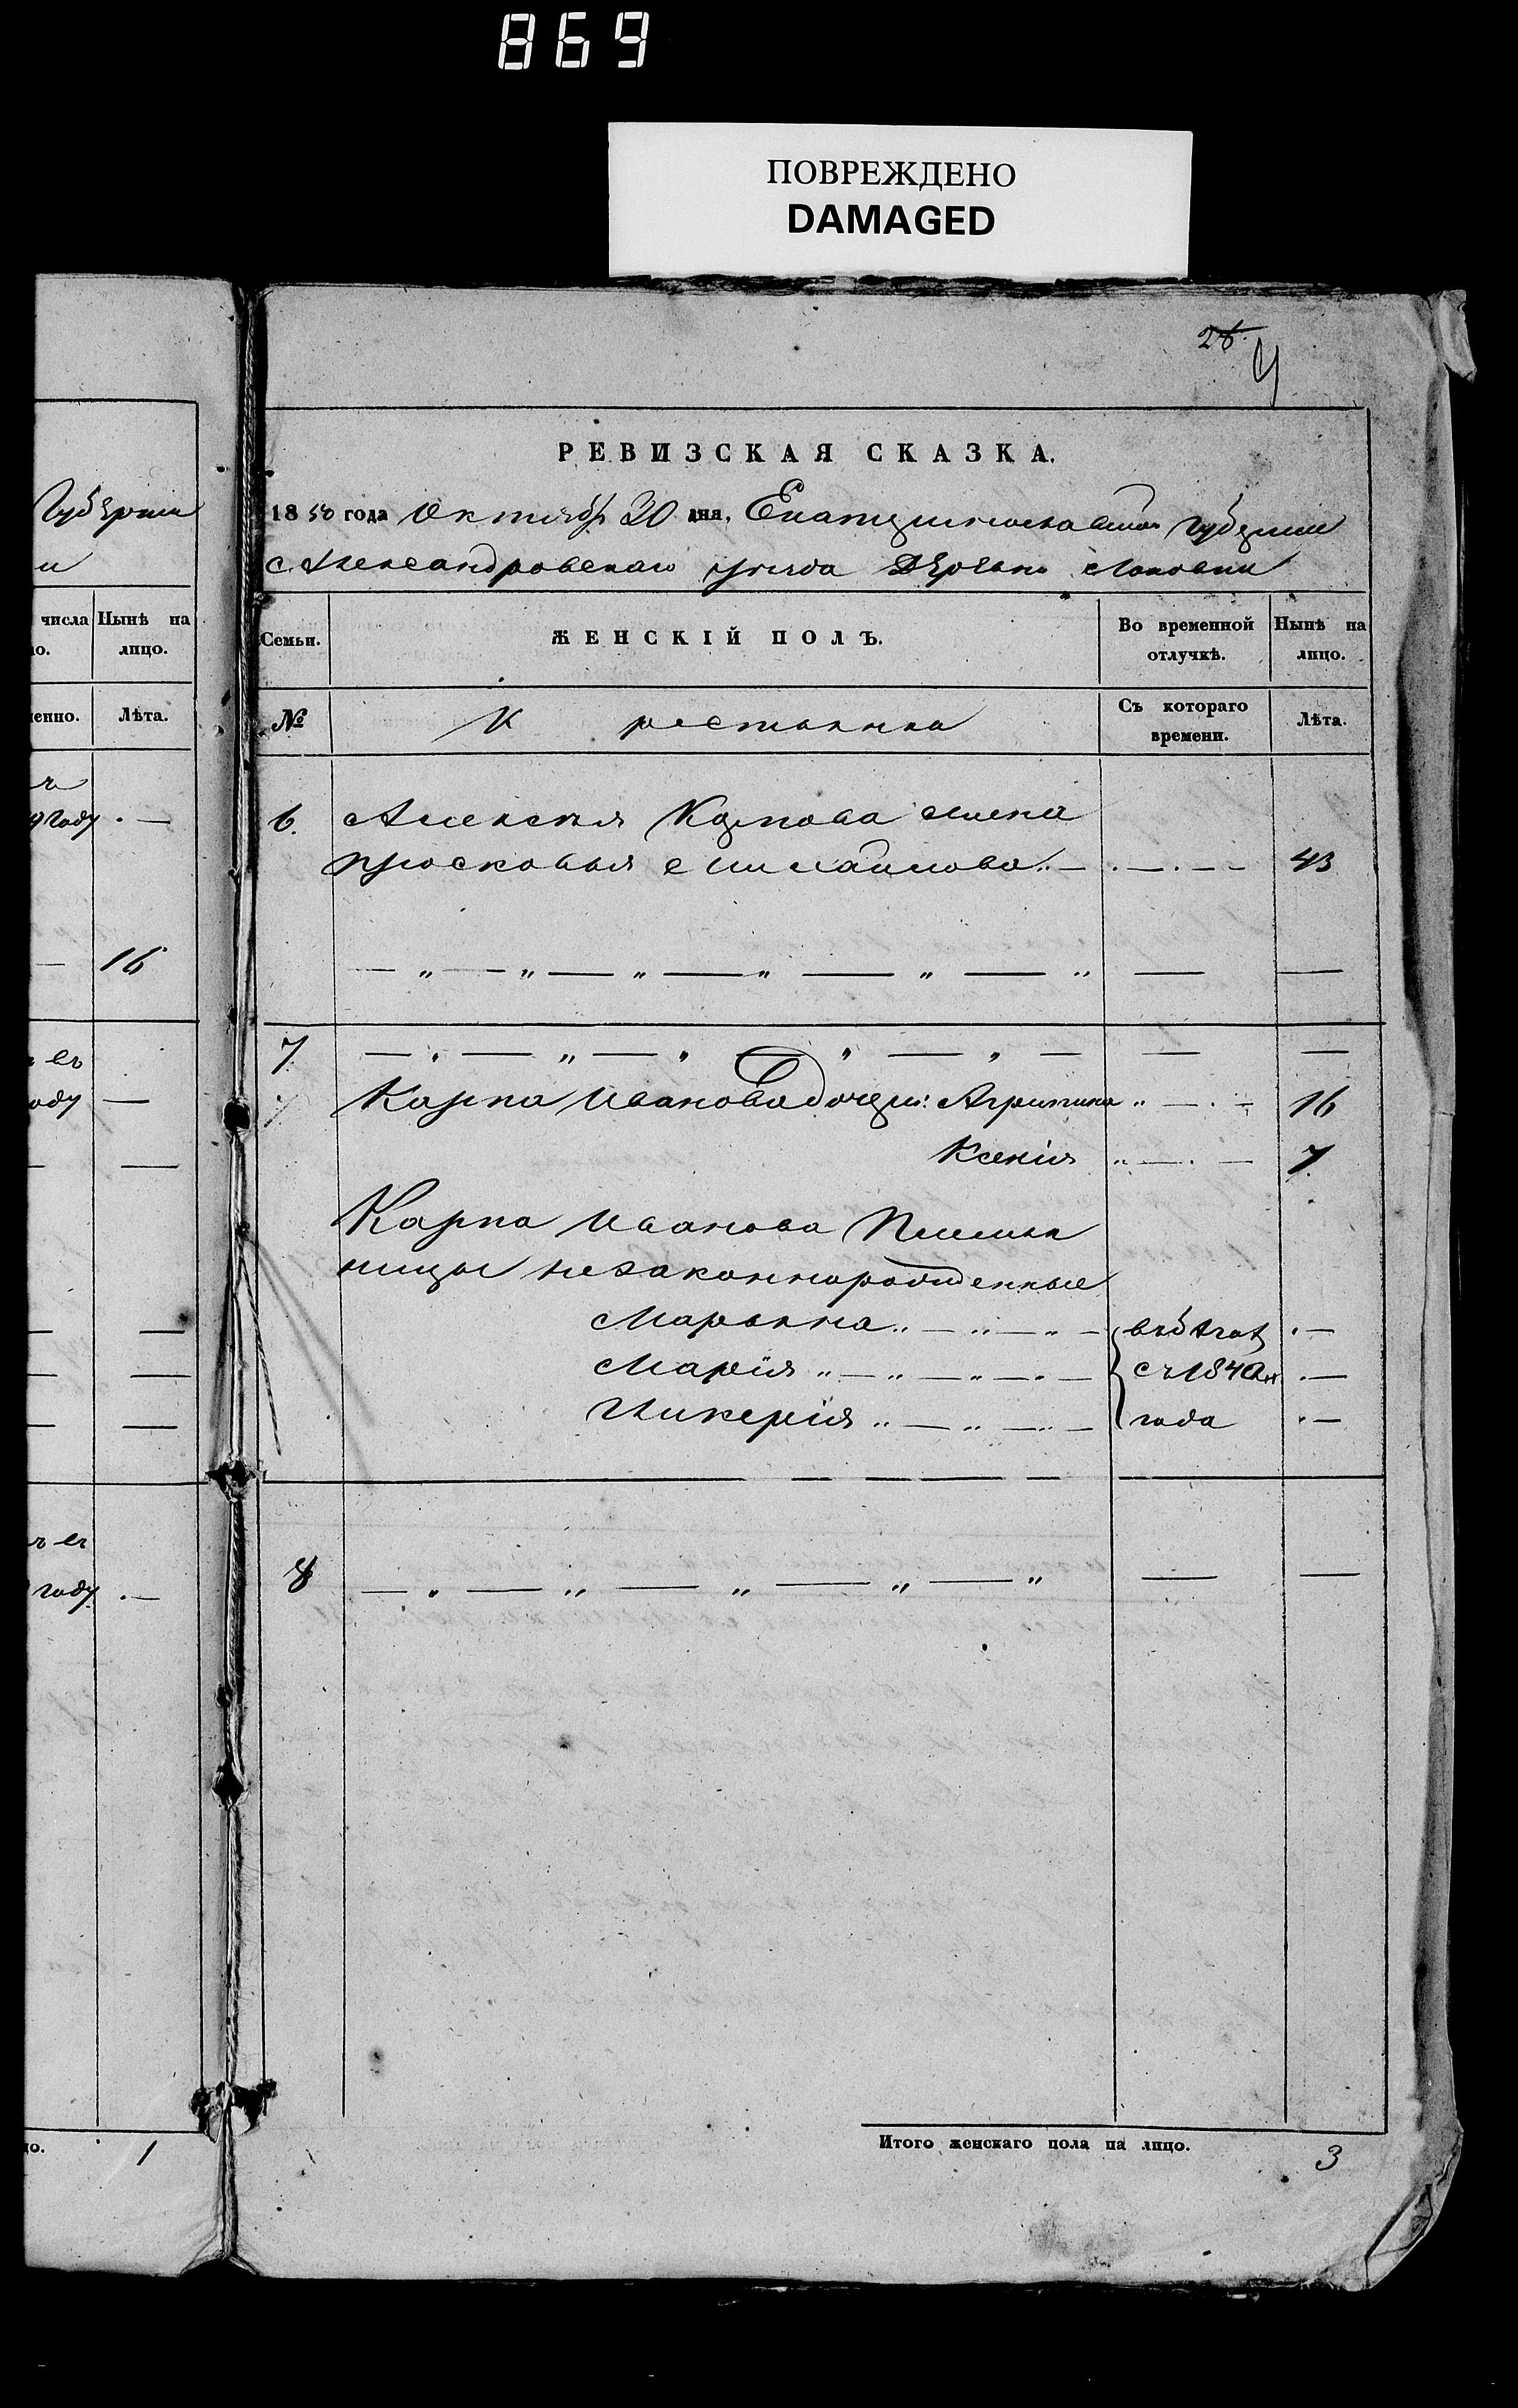 869
ПОВРЕЖДЕНО
DAMAGED
28.
РЕВИЗСКАЯ СКАЗКА.
1850 года Октября 30 дня, Екатеринославской Губернии
Александровскаго уезда Деревни
Губернии
и
числа Нынѣ на
ло. лицо.
Семьи. ЖЕНСКІЙ ПОЛЪ. Во временной отлучкѣ. Нынѣ на лицо.
менно. Лѣта.
№ Крестьянка Съ котораго времени. Лѣта.
году . —
6. Алексея Карпова жена
Просковья Михайлова . — . — . — — 43
— 16
— " — " — " — " — " — " — —
7 — . — " — " — " — " — — —
Карпа Иванова дочери: Агрипина " — . — 16
Ксенія " — . — 7
Карпа Иванова Племян
ницы незаконнорожденные
Марьяна " — " — " — въ бегах . —
Марія " — " — " — . — съ 1840 . —
Гликерія " — " — " — года . —
году . —
8 — " — " — " — " — " — —
ло. 1
Итого женскаго пола на лицо. 3